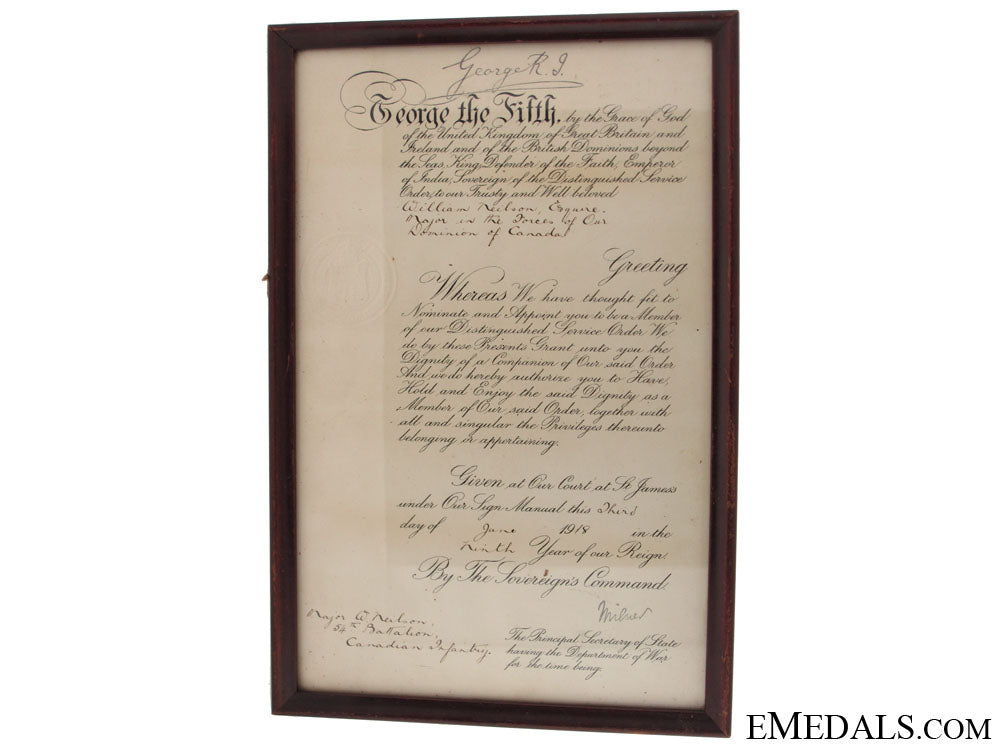 George R.I.
George the Fifth, by the Grace of God
of the United Kingdom of Great Britain and
Ireland and of the British Dominions beyond
the Seas, King, Defender of the Faith, Emperor
of India, Sovereign of the Distinguished Service
Order, to our Trusty and Well beloved
William Neilson, Esquire.
Major in the Forces of Our
Dominion of Canada
Greeting
Whereas We have thought fit to
Nominate and Appoint you to be a Member
of our Distinguished Service Order We
do by these Presents Grant unto you the
Dignity of a Companion of Our said Order
And we do hereby authorize you to Have,
Hold and Enjoy the said Dignity as a
Member of Our said Order, together with
all and singular the Privileges thereunto
belonging or appertaining.
Given at Our Court at St James's
under Our Sign Manual this Third
day of June 1918 in the
Ninth Year of our Reign.
By The Sovereign's Command.
Milner
Major W. Neilson.
54th Battalion,
Canadian Infantry.
The Principal Secretary of State
having the Department of War
for the time being.
EMEDALS.COM